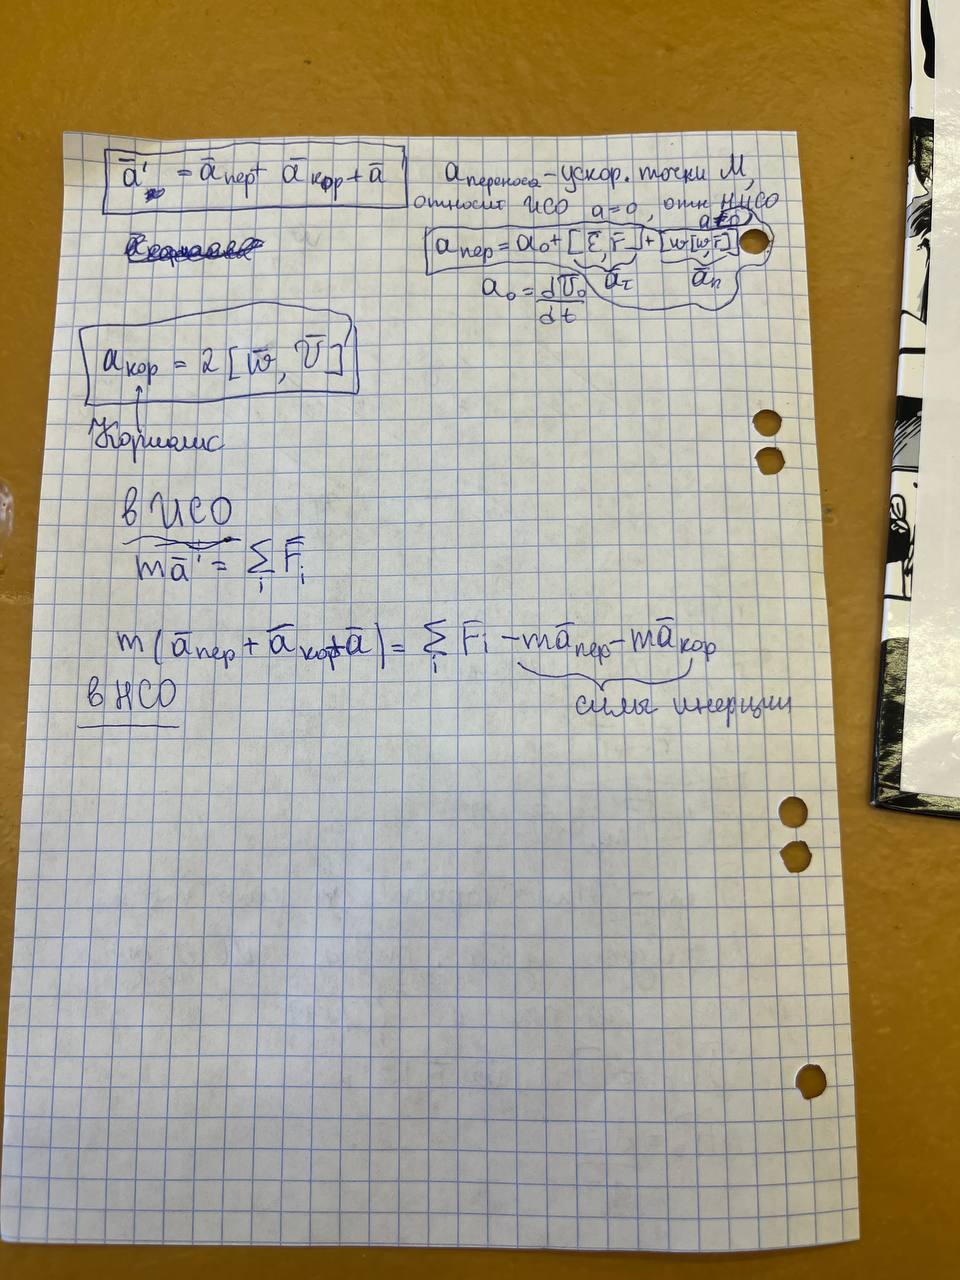 ā' = ā пер + ā кор + ā
a переноса – ускор. точки М,
относит ИСО a=0, отн НИСО
a≠0
a пер = a₀ + [ε̄, r̄] + [w̄[w̄, r̄]]
ā τ ā n
a₀ = dV̄₀/dt
a кор = 2 [w̄, V̄]
Кориолис
в ИСО
mā' = Σ i F̄ i
m(ā пер + ā кор + ā) = Σ i F̄ i – mā пер – mā кор
в НСО
силы инерции